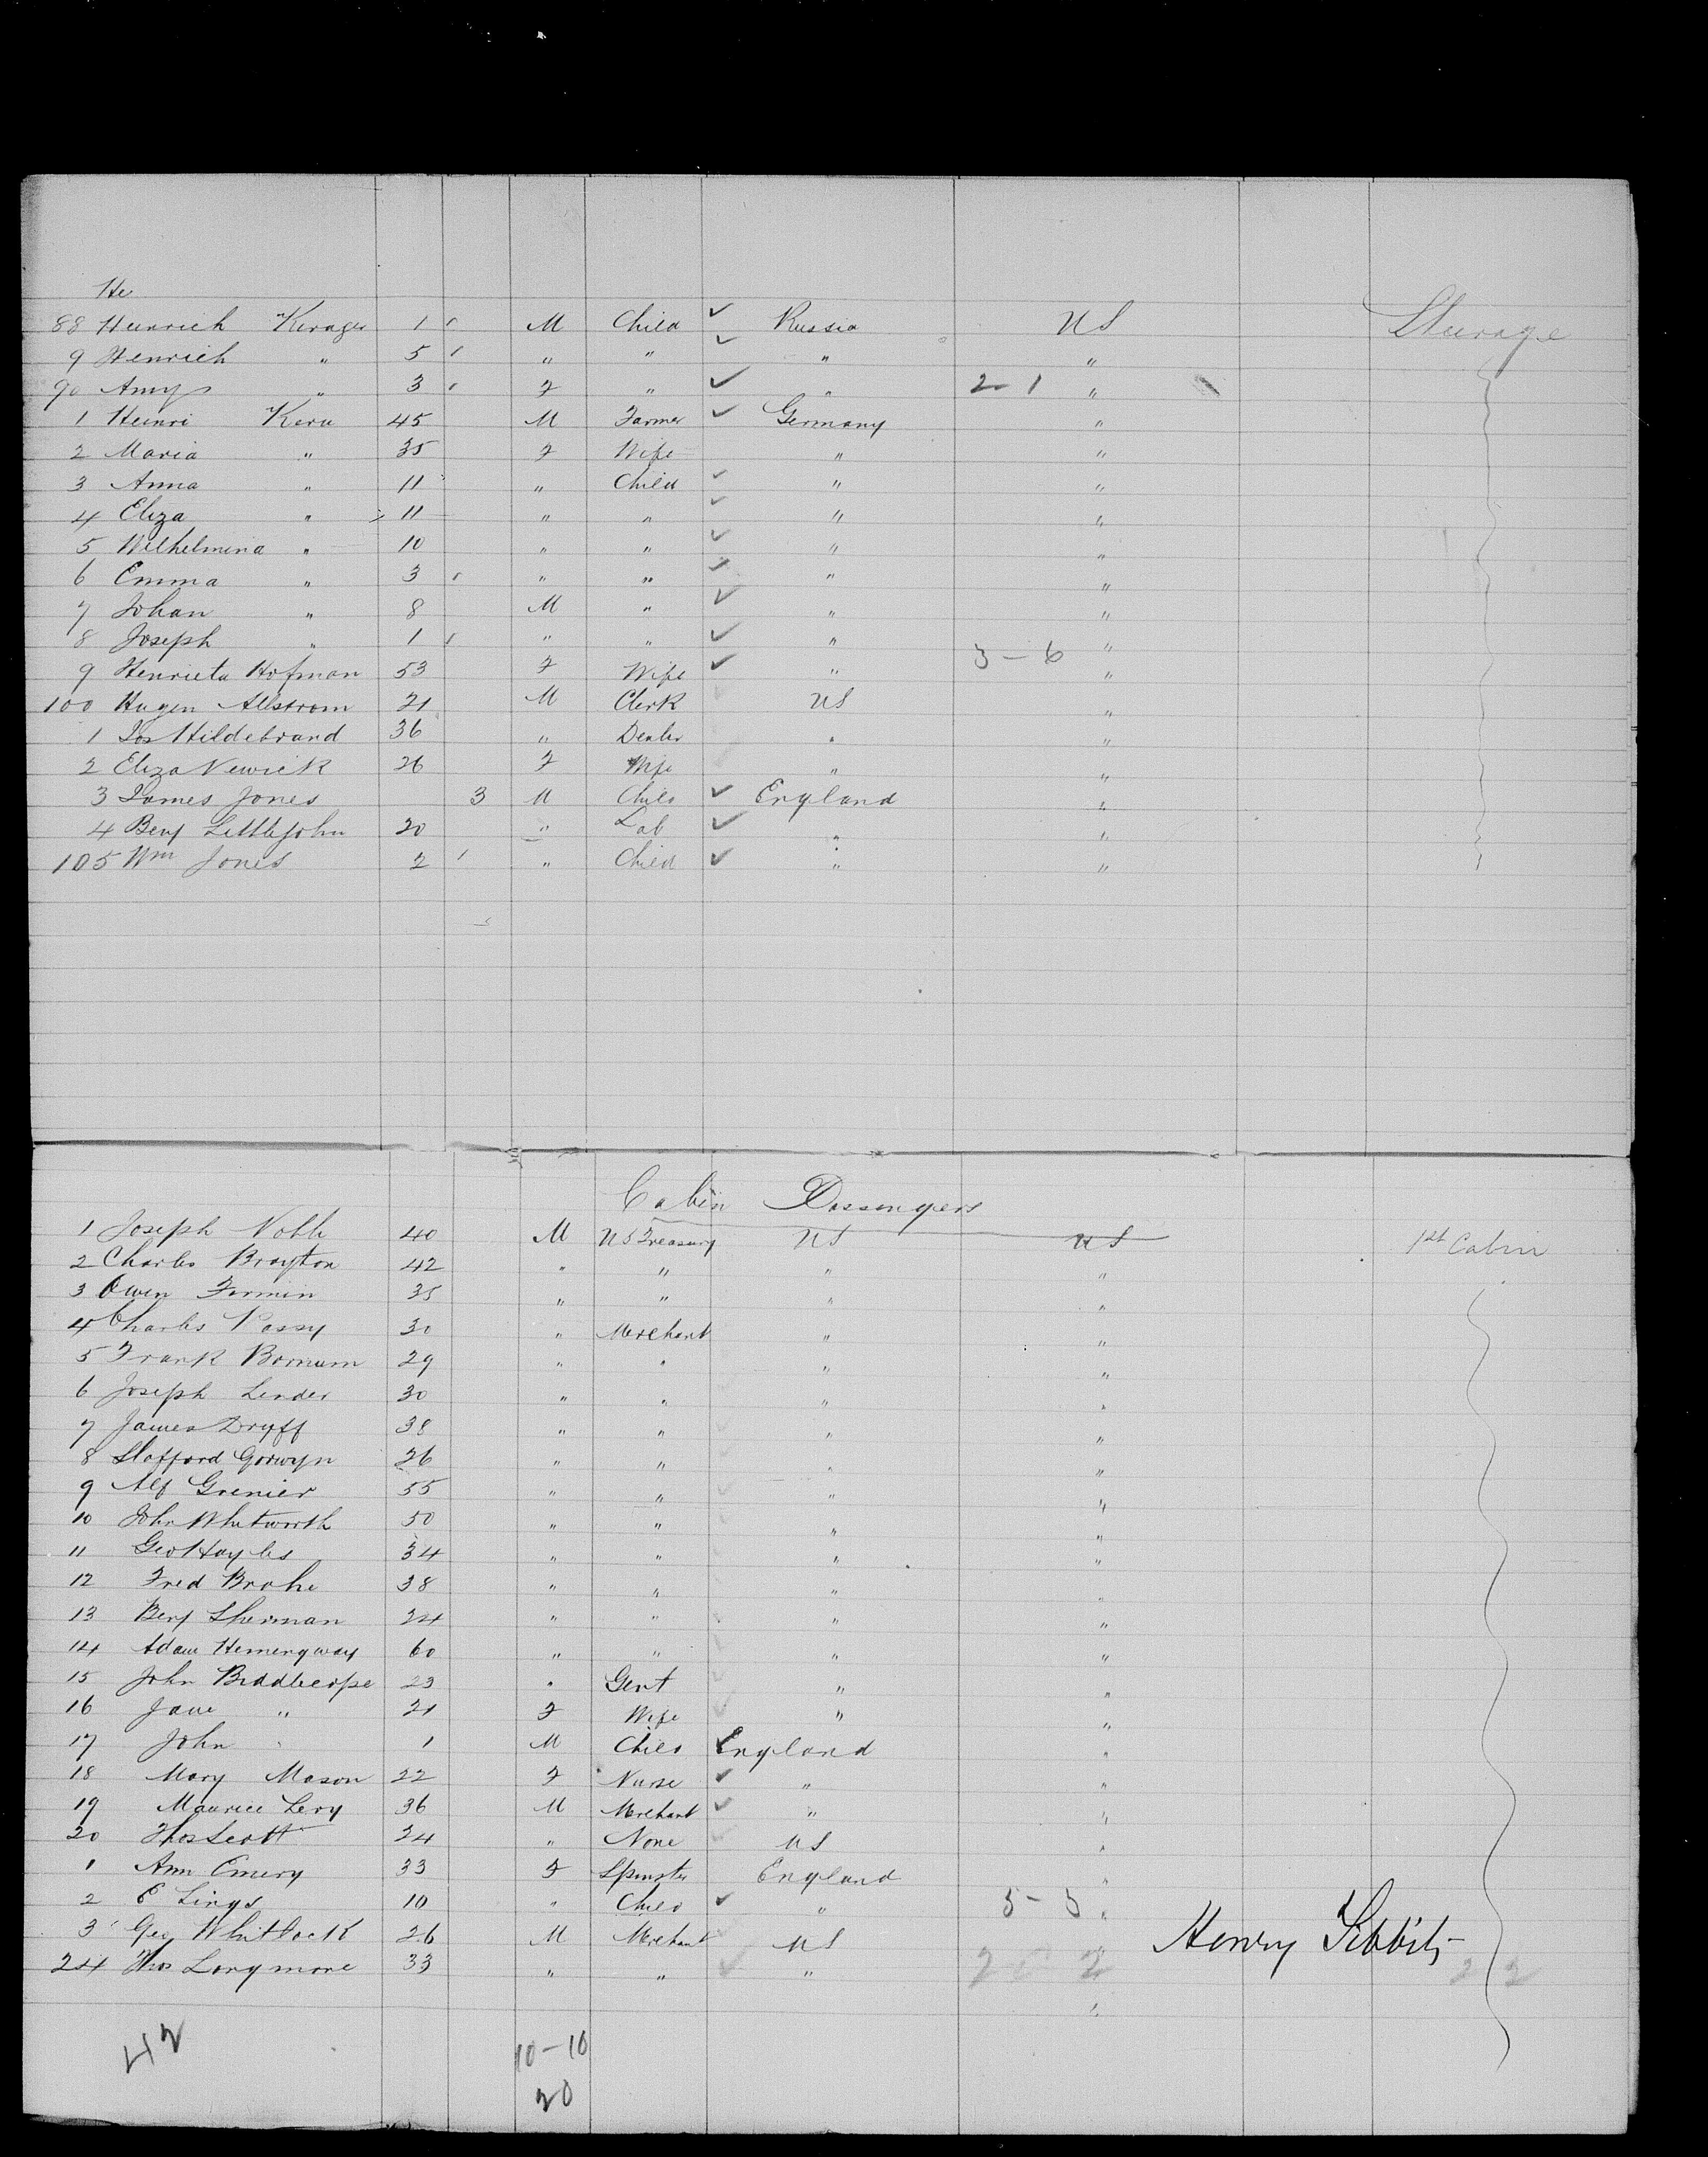 He
88 Heinrich Kruger 1 M Child ✓ Russia US Steerage
9 Henrich " 5 " " ✓ " "
90 Amy " 3 F " ✓ " 2-1 "
1 Heinri Keru 45 M Farmer ✓ Germany "
2 Maria " 35 F Wife " "
3 Anna " 11 " Child ✓ " "
4 Eliza " 11 " " ✓ " "
5 Wilhelmina " 10 " " ✓ " "
6 Emma " 3 " " ✓ " "
7 Johan " 8 M " ✓ " "
8 Joseph " 1 " " ✓ " "
9 Henrieta Hofman 53 F Wife ✓ " 3-6 "
100 Hugen Allstrom 21 M Clerk US "
1 Jos Hildebrand 36 " Dealer " "
2 Eliza Newick 26 F Wife " "
3 James Jones 3 M Child ✓ England "
4 Benj Littlejohn 20 " Lab ✓ " "
105 Wm Jones 2 " Child ✓ " "
Cabin Passengers
1 Joseph Noble 40 M US Treasury US US 1st Cabin
2 Charles Brayton 42 " " " "
3 Owen Formin 35 " " " "
4 Charles Possy 30 " Merchant " "
5 Frank Bornum 29 " " " "
6 Joseph Linder 30 " " " "
7 James Dryff 38 " " " "
8 Stafford Gorwyn 26 " " " "
9 Alf Grenier 55 " " " "
10 John Whitworth 50 " " " "
11 Geo Hayles 34 " " " "
12 Fred Brohe 38 " " " "
13 Benj Sherman 24 " " " "
14 Adam Hemingway 60 " " " "
15 John Biddlecope 23 " Gent " "
16 Jane " 21 F Wife " "
17 John " 1 M Child ✓ England "
18 Mary Mason 22 F Nurse ✓ " "
19 Maurice Levy 36 M Merchant ✓ " "
20 Thos Scott 24 " None US "
1 Ann Emery 33 F Spinster England "
2 E Lings 10 " Child ✓ " 5-5 "
3 Geo Whitlock 26 M Merchant US " Henry Tibbits
24 Thos Longmore 33 " " " 2 2 2 2
"
42 10-10
20